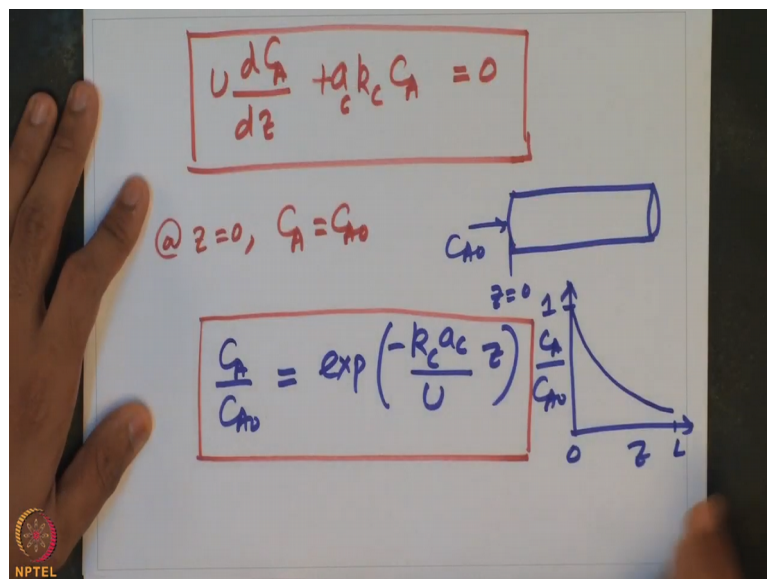 U dC_A/dz + a_c k_c C_A = 0
@ z=0, C_A = C_A0
C_A0
z=0
C_A/C_A0 = exp(-k_c a_c/U z)
1
C_A/C_A0
0 z L
NPTEL